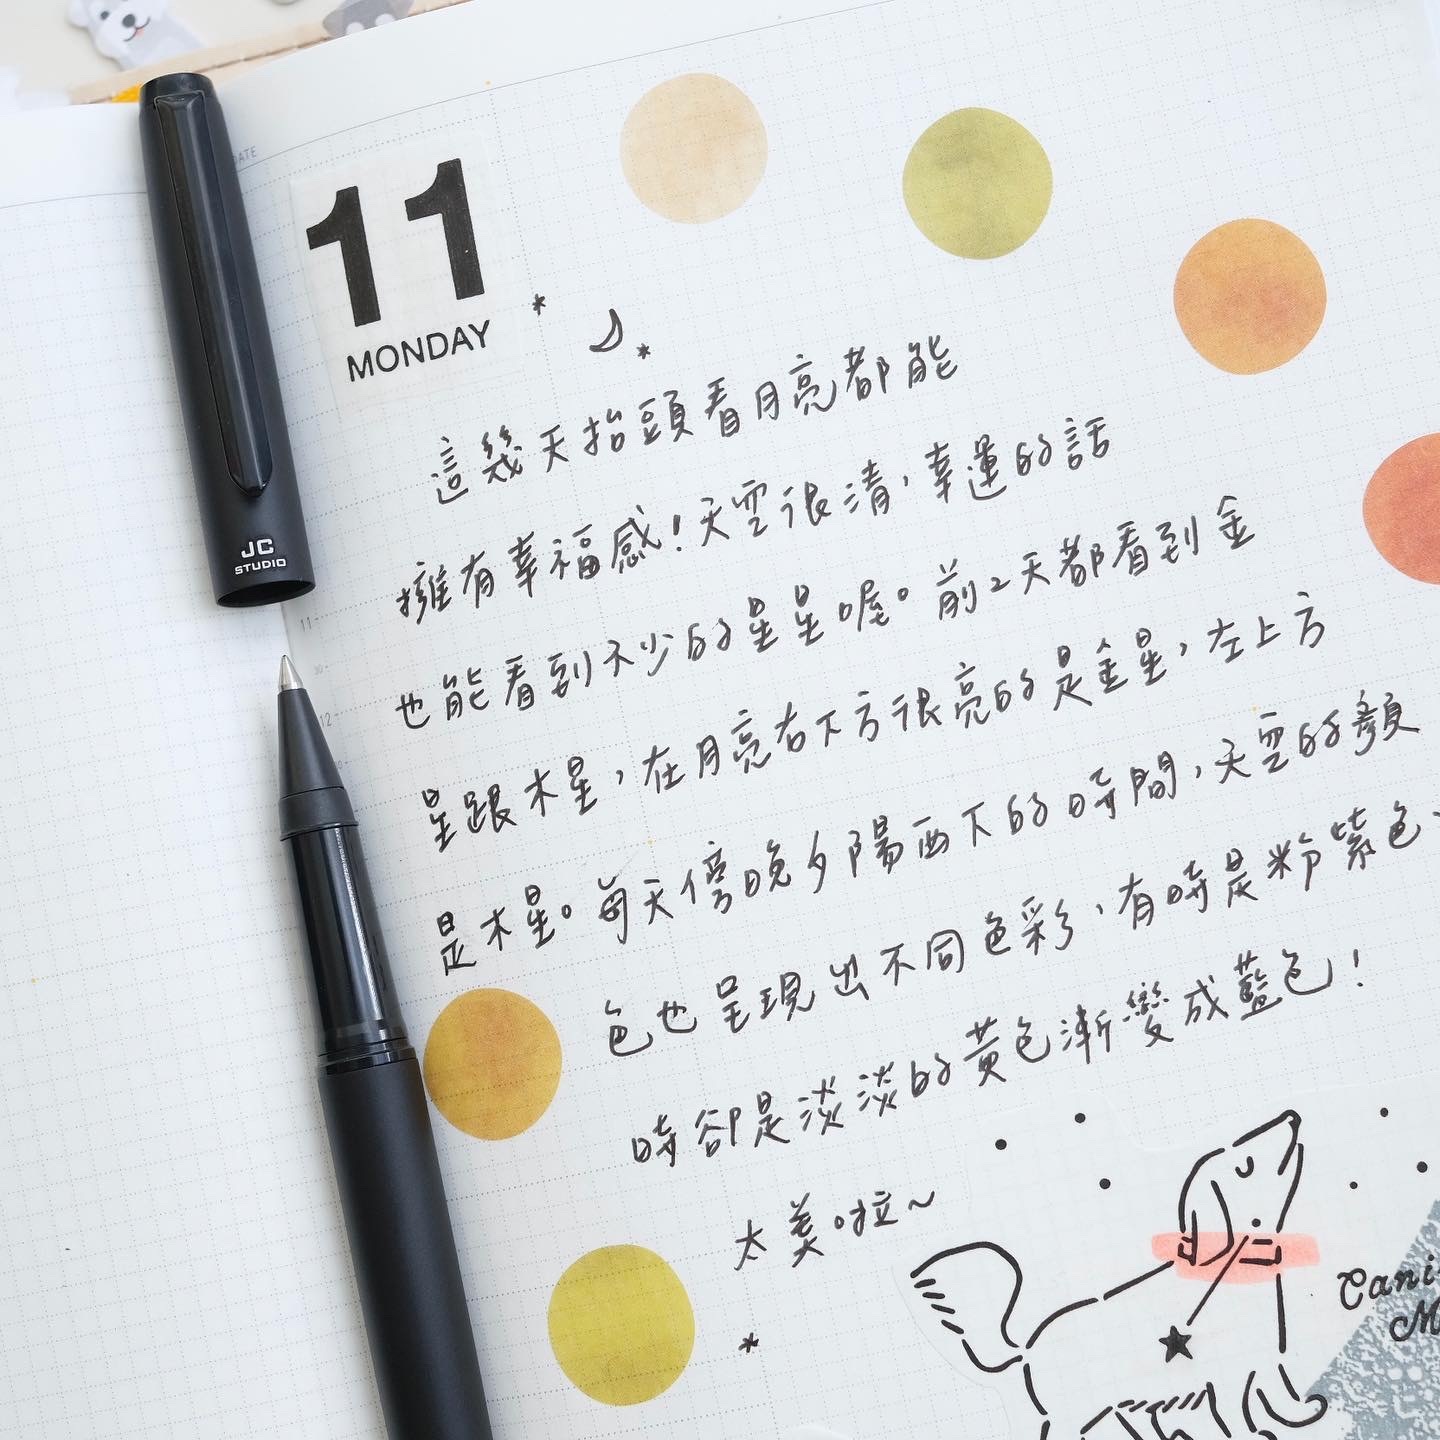 DATE
11
MONDAY
這幾天抬頭看月亮都能
擁有幸福感！天空很清，幸運的話
也能看到不少的星星喔。前2天都看到金
星跟木星，在月亮右下方很亮的是金星，左上方
是木星。每天傍晚夕陽西下的時間，天空的顏
色也呈現出不同色彩，有時是粉紫色、
時卻是淡淡的黃色漸變成藍色！
太美啦～
JC
STUDIO
11
12
Cani
M